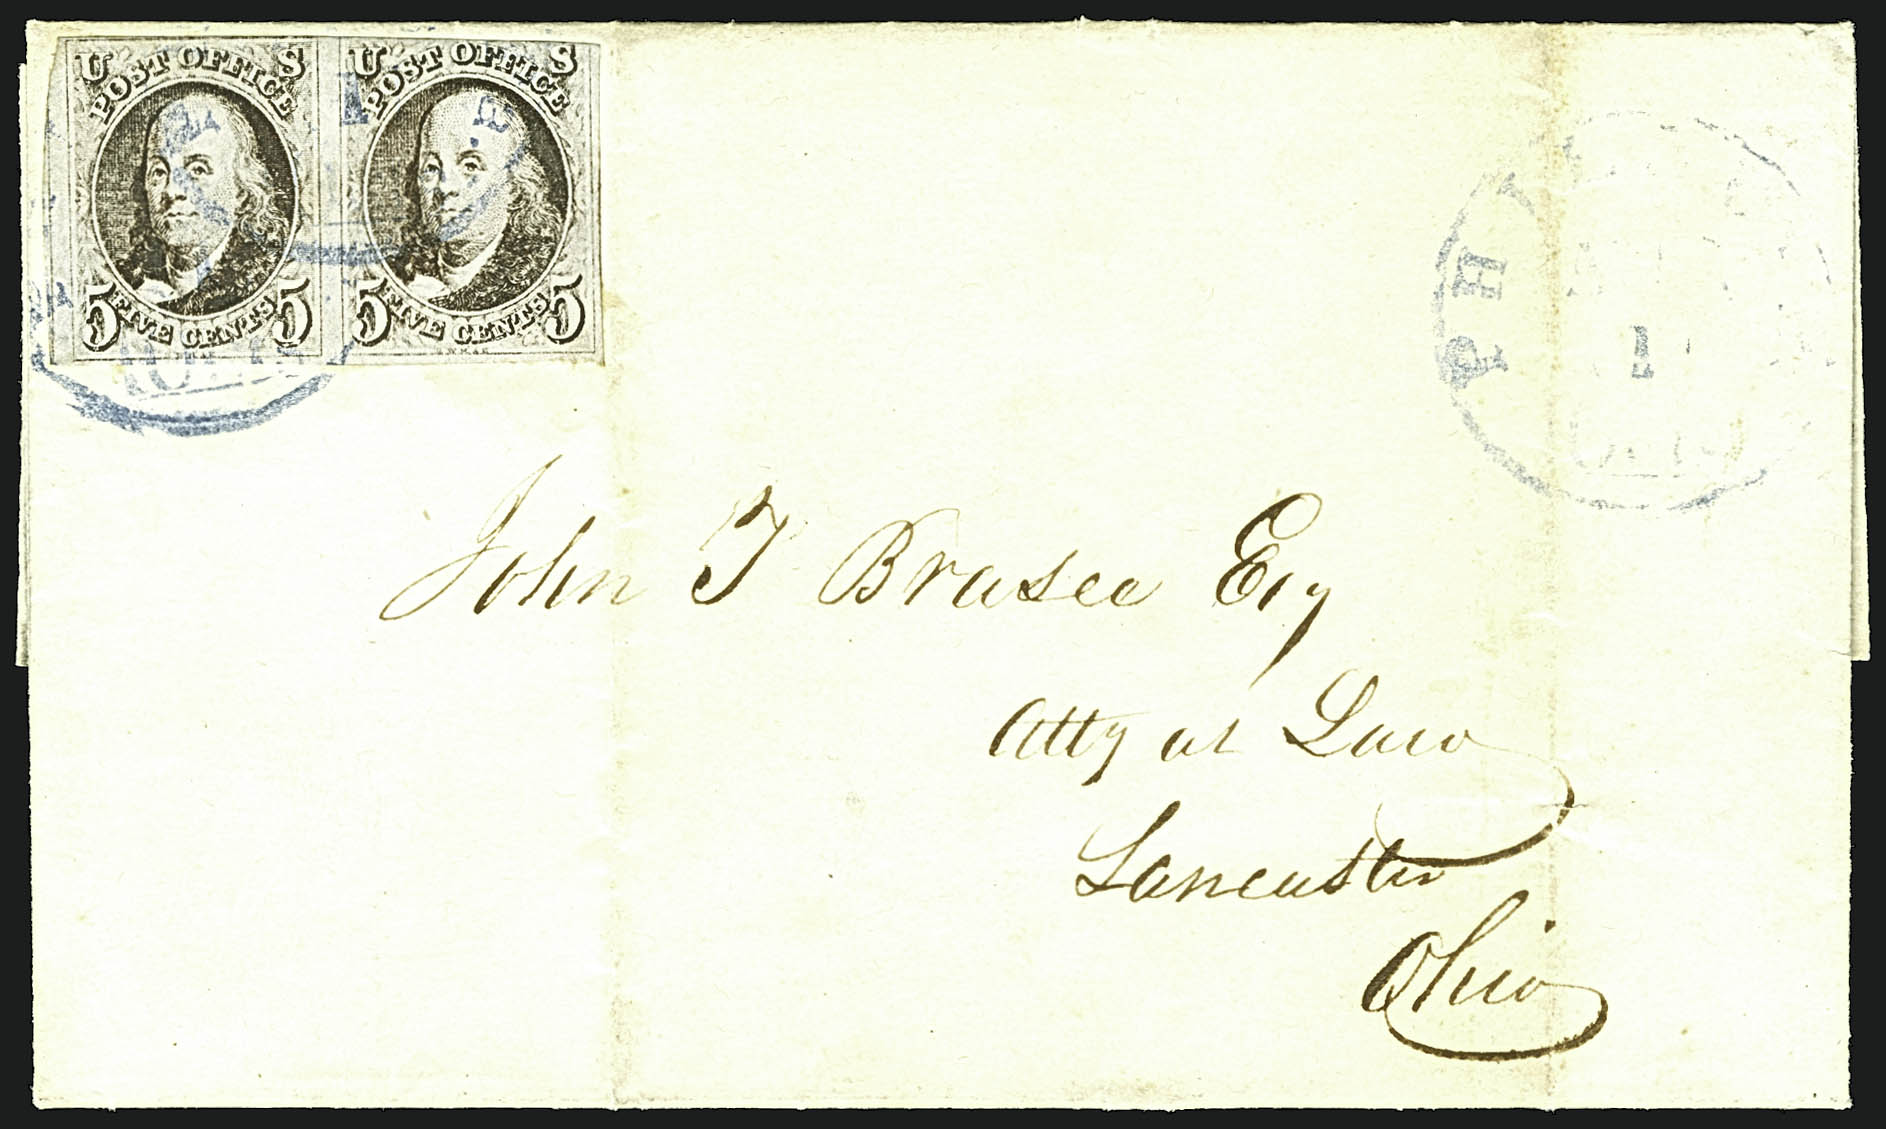 U S U S
POST OFFICE POST OFFICE
5 FIVE CENTS 5 5 FIVE CENTS 5
PH
1
John T Brasee Esq
Atty at Law
Lancaster
Ohio